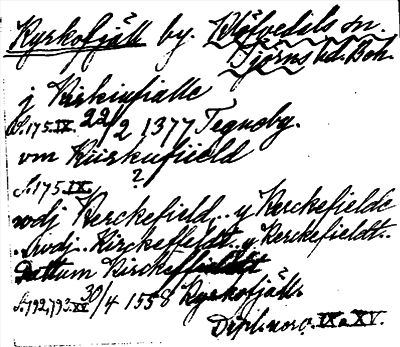 Kyrkofjäll by. Klövedals sn.
Tjörns hd. Boh.
j Kirkiufialle
S.175.IX. 22/2 1377 Tegneby.
vm Kirkufiield
S.175 IX. ?
wdj Kerckefield.. y Kerckefielde
. Kirckeffeldt. y Kerckefieldt.
Dattum Kirckeffieldt
S.792,793.XV 30/4 1558 Kyrkofjäll.
Dipl. norv. IX o. XV.